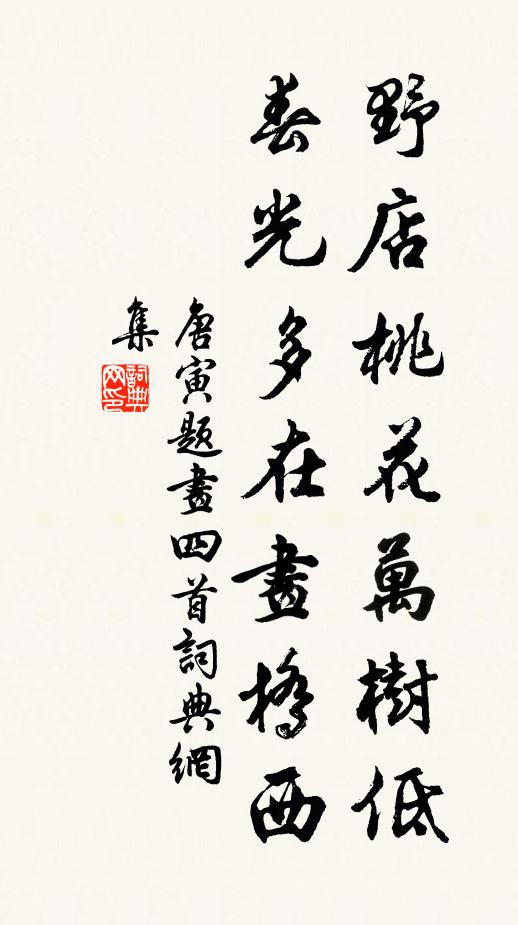 野店桃花萬樹低
春光多在畫橋西
唐寅題畫四首詞典網
集
詞典網印